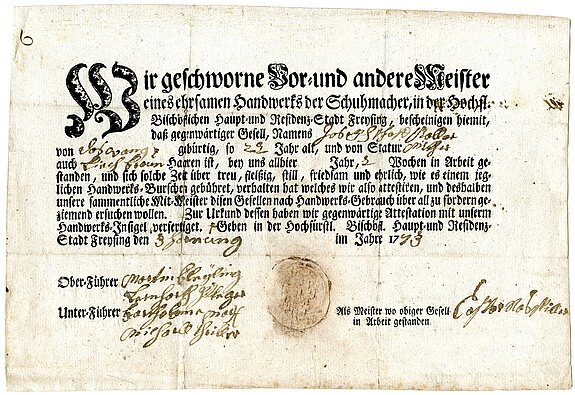 6
Wir geschworne Vor- und andere Meister
eines ehrsamen Handwerks der Schuhmacher, in der Hochfl.
Bischöflichen Haupt- und Residenz-Stadt Freysing, bescheinigen hiemit,
daß gegenwärtiger Gesell, Namens
von gebürtig, so 22 Jahr alt, und von Statur
auch Haaren ist, bey uns allhier Jahr, 2 Wochen in Arbeit ge-
standen, und sich solche Zeit über treu, fleißig, still, friedsam und ehrlich, wie es einem jeg-
lichen Handwerks-Burschen gebühret, verhalten hat welches wir also attestiren, und deshalben
unsere sammentliche Mit-Meister disen Gesellen nach Handwerks-Gebrauch über all zu fördern ge-
ziemend ersuchen wollen. Zur Urkund dessen haben wir gegenwärtige Attestation mit unserm
Handwerks-Insigel verfertiget. Geben in der Hochfürstl. Bischöfl. Haupt- und Residenz-
Stadt Freysing den 3 Hornung im Jahr 1793
Ober-Führer Martin
Unter-Führer
Michael
Als Meister wo obiger Gesell
in Arbeit gestanden